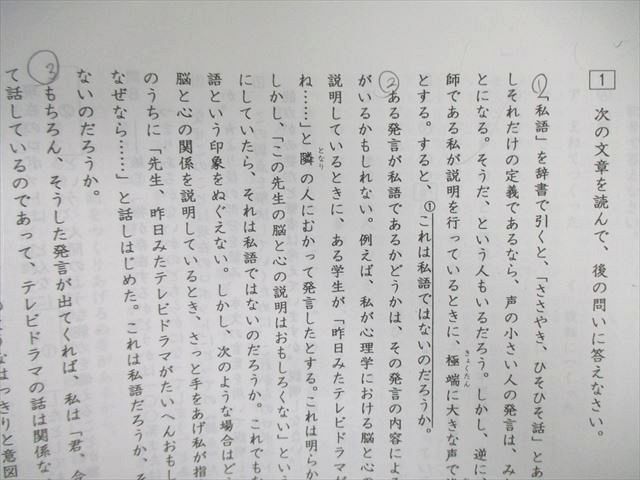 1 次の文章を読んで、後の問いに答えなさい。
①「私語」を辞書で引くと、「ささやき、ひそひそ話」とあ
しそれだけの定義であるなら、声の小さい人の発言は、み
とになる。そうだ、という人もいるだろう。しかし、逆に、
師である私が説明を行っているときに、極端に大きな声で
きょくたん
とする。すると、①これは私語ではないのだろうか。
②ある発言が私語であるかどうかは、その発言の内容によ
がいるかもしれない。例えば、私が心理学における脳と心の
説明しているときに、ある学生が「昨日みたテレビドラマが
ね……」と隣の人にむかって発言したとする。これは明らか
となり
しかし、「この先生の脳と心の説明はおもしろくない」という
にしていたら、それは私語ではないのだろうか。これでもな
語という印象をぬぐえない。しかし、次のような場合はど
脳と心の関係を説明しているとき、さっと手をあげ私が指
のうちに「先生、昨日みたテレビドラマがたいへんおもし
なぜなら……」と話しはじめた。これは私語だろうか、そ
ないのだろうか。
③もちろん、そうした発言が出てくれば、私は「君、今
て話しているのであって、テレビドラマの話は関係な
はっきりと意図